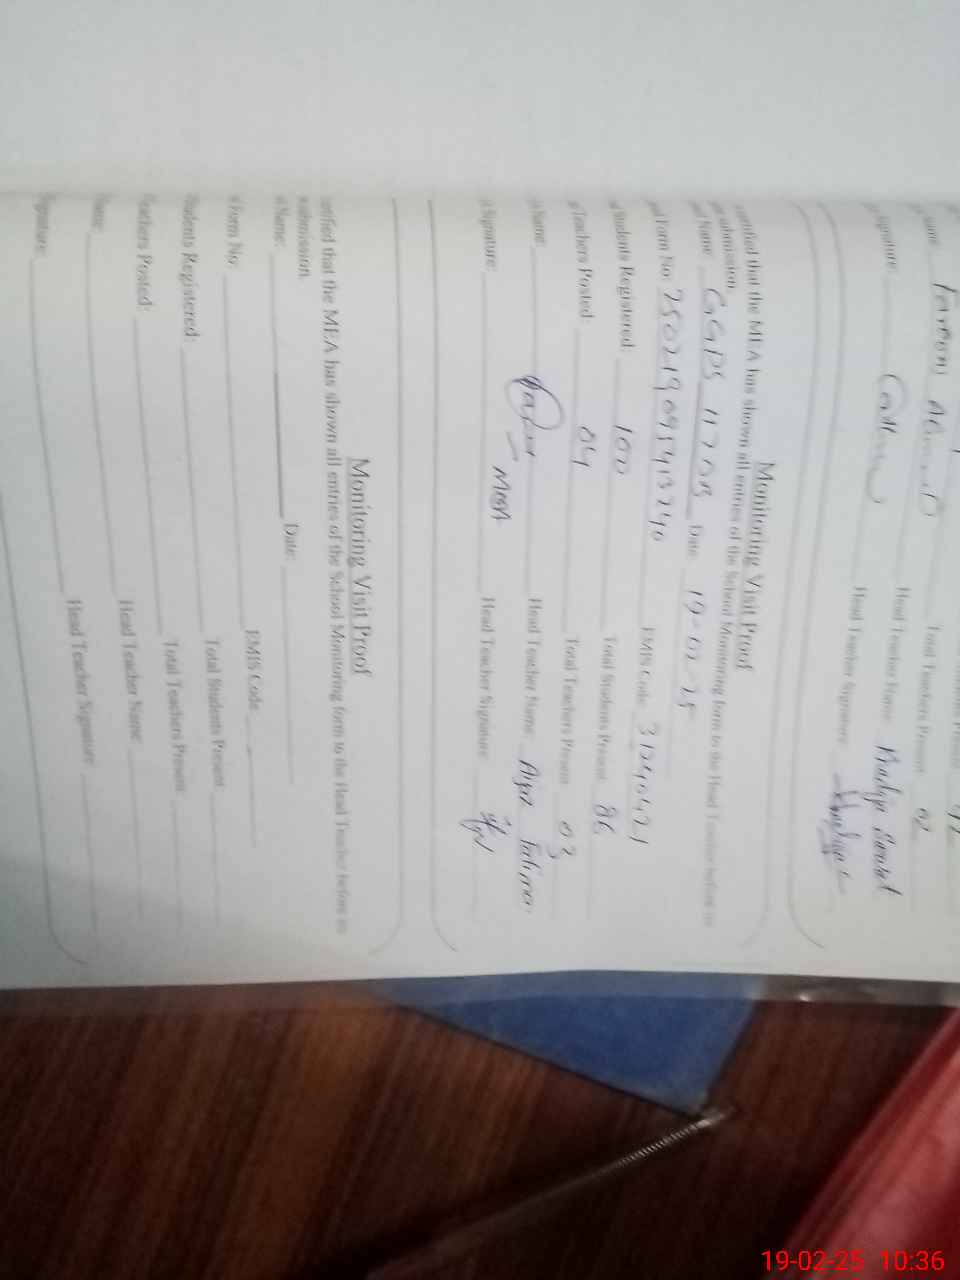 Name: Total Teachers Present 02
Signature: Head Teacher Name:
Head Teacher Signature
Monitoring Visit Proof
ertified that the MEA has shown all entries of the School Monitoring form to the Head Teacher before
submission.
Name: GGPS 117 DB Date: 19-02-25
Form No: EMIS Code: 31240421
Students Registered: 100 Total Students Present 86
Teachers Posted: 04 Total Teachers Present 03
Name: Head Teacher Name:
Signature: MEA Head Teacher Signature
Monitoring Visit Proof
ertified that the MEA has shown all entries of the School Monitoring form to the Head Teacher before
submission.
Name: Date:
Form No: EMIS Code:
Students Registered: Total Students Present
Teachers Posted: Total Teachers Present
Name: Head Teacher Name:
Signature: Head Teacher Signature
19-02-25 10:36